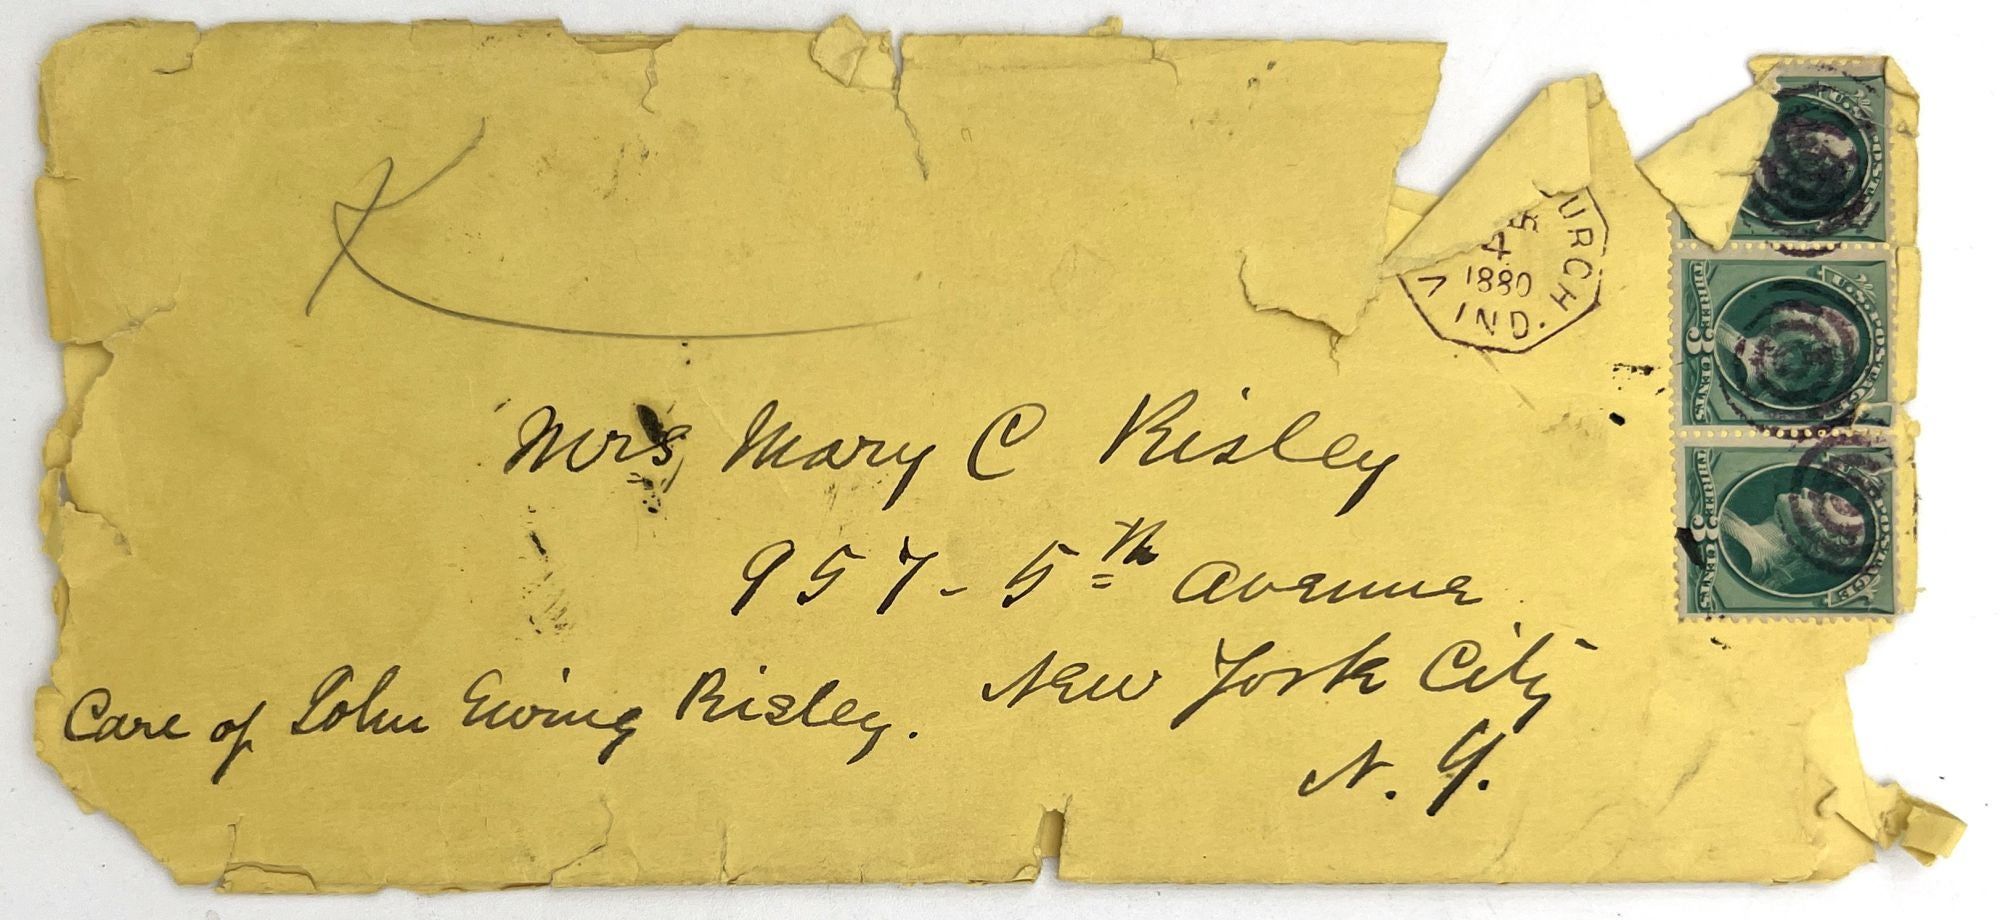 URCH
1880
IND.
U.S. POSTAGE
THREE 3 CENTS
U.S. POSTAGE
THREE 3 CENTS
U.S. POSTAGE
Mrs Mary C Risley
957 - 5th Avenue
New York City
N. Y.
Care of John Ewing Risley.